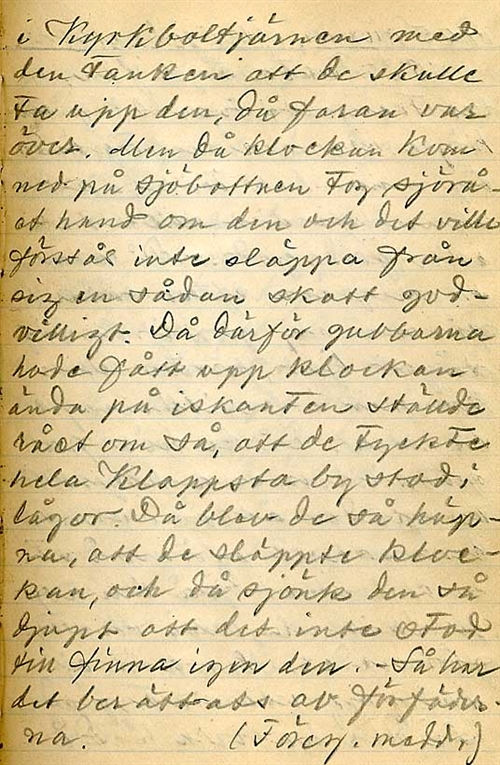 i Kyrkboltjärnen med
den tanken att de skulle
ta upp den, då faran var
över. Men då klockan kom
ned på sjöbottnen tog sjörå-
et hand om den och det ville
förstås inte släppa från
sig en sådan skatt god-
villigt. Då därför gubbarna
hade fått upp klockan
ända på iskanten ställde
rået om så, att de tyckte
hela Klappsta by stod i
lågor. Då blev de så häp-
na, att de släppte kloc-
kan, och då sjönk den så
djupt att det inte stod
till finna igen den. - Så har
det berättats av förfäder-
na. (Föreg. medd.)